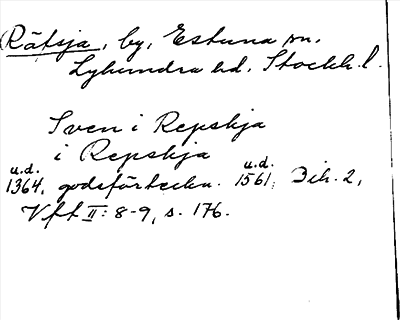 Rätsja, by, Estuna sn.
Lyhundra hd. Stockh. l.
Sven i Repskja
i Repskja
u.d. 1364, godsförteckn. u.d. 1561, Dih. 2,
Vfft II: 8-9, s. 176.